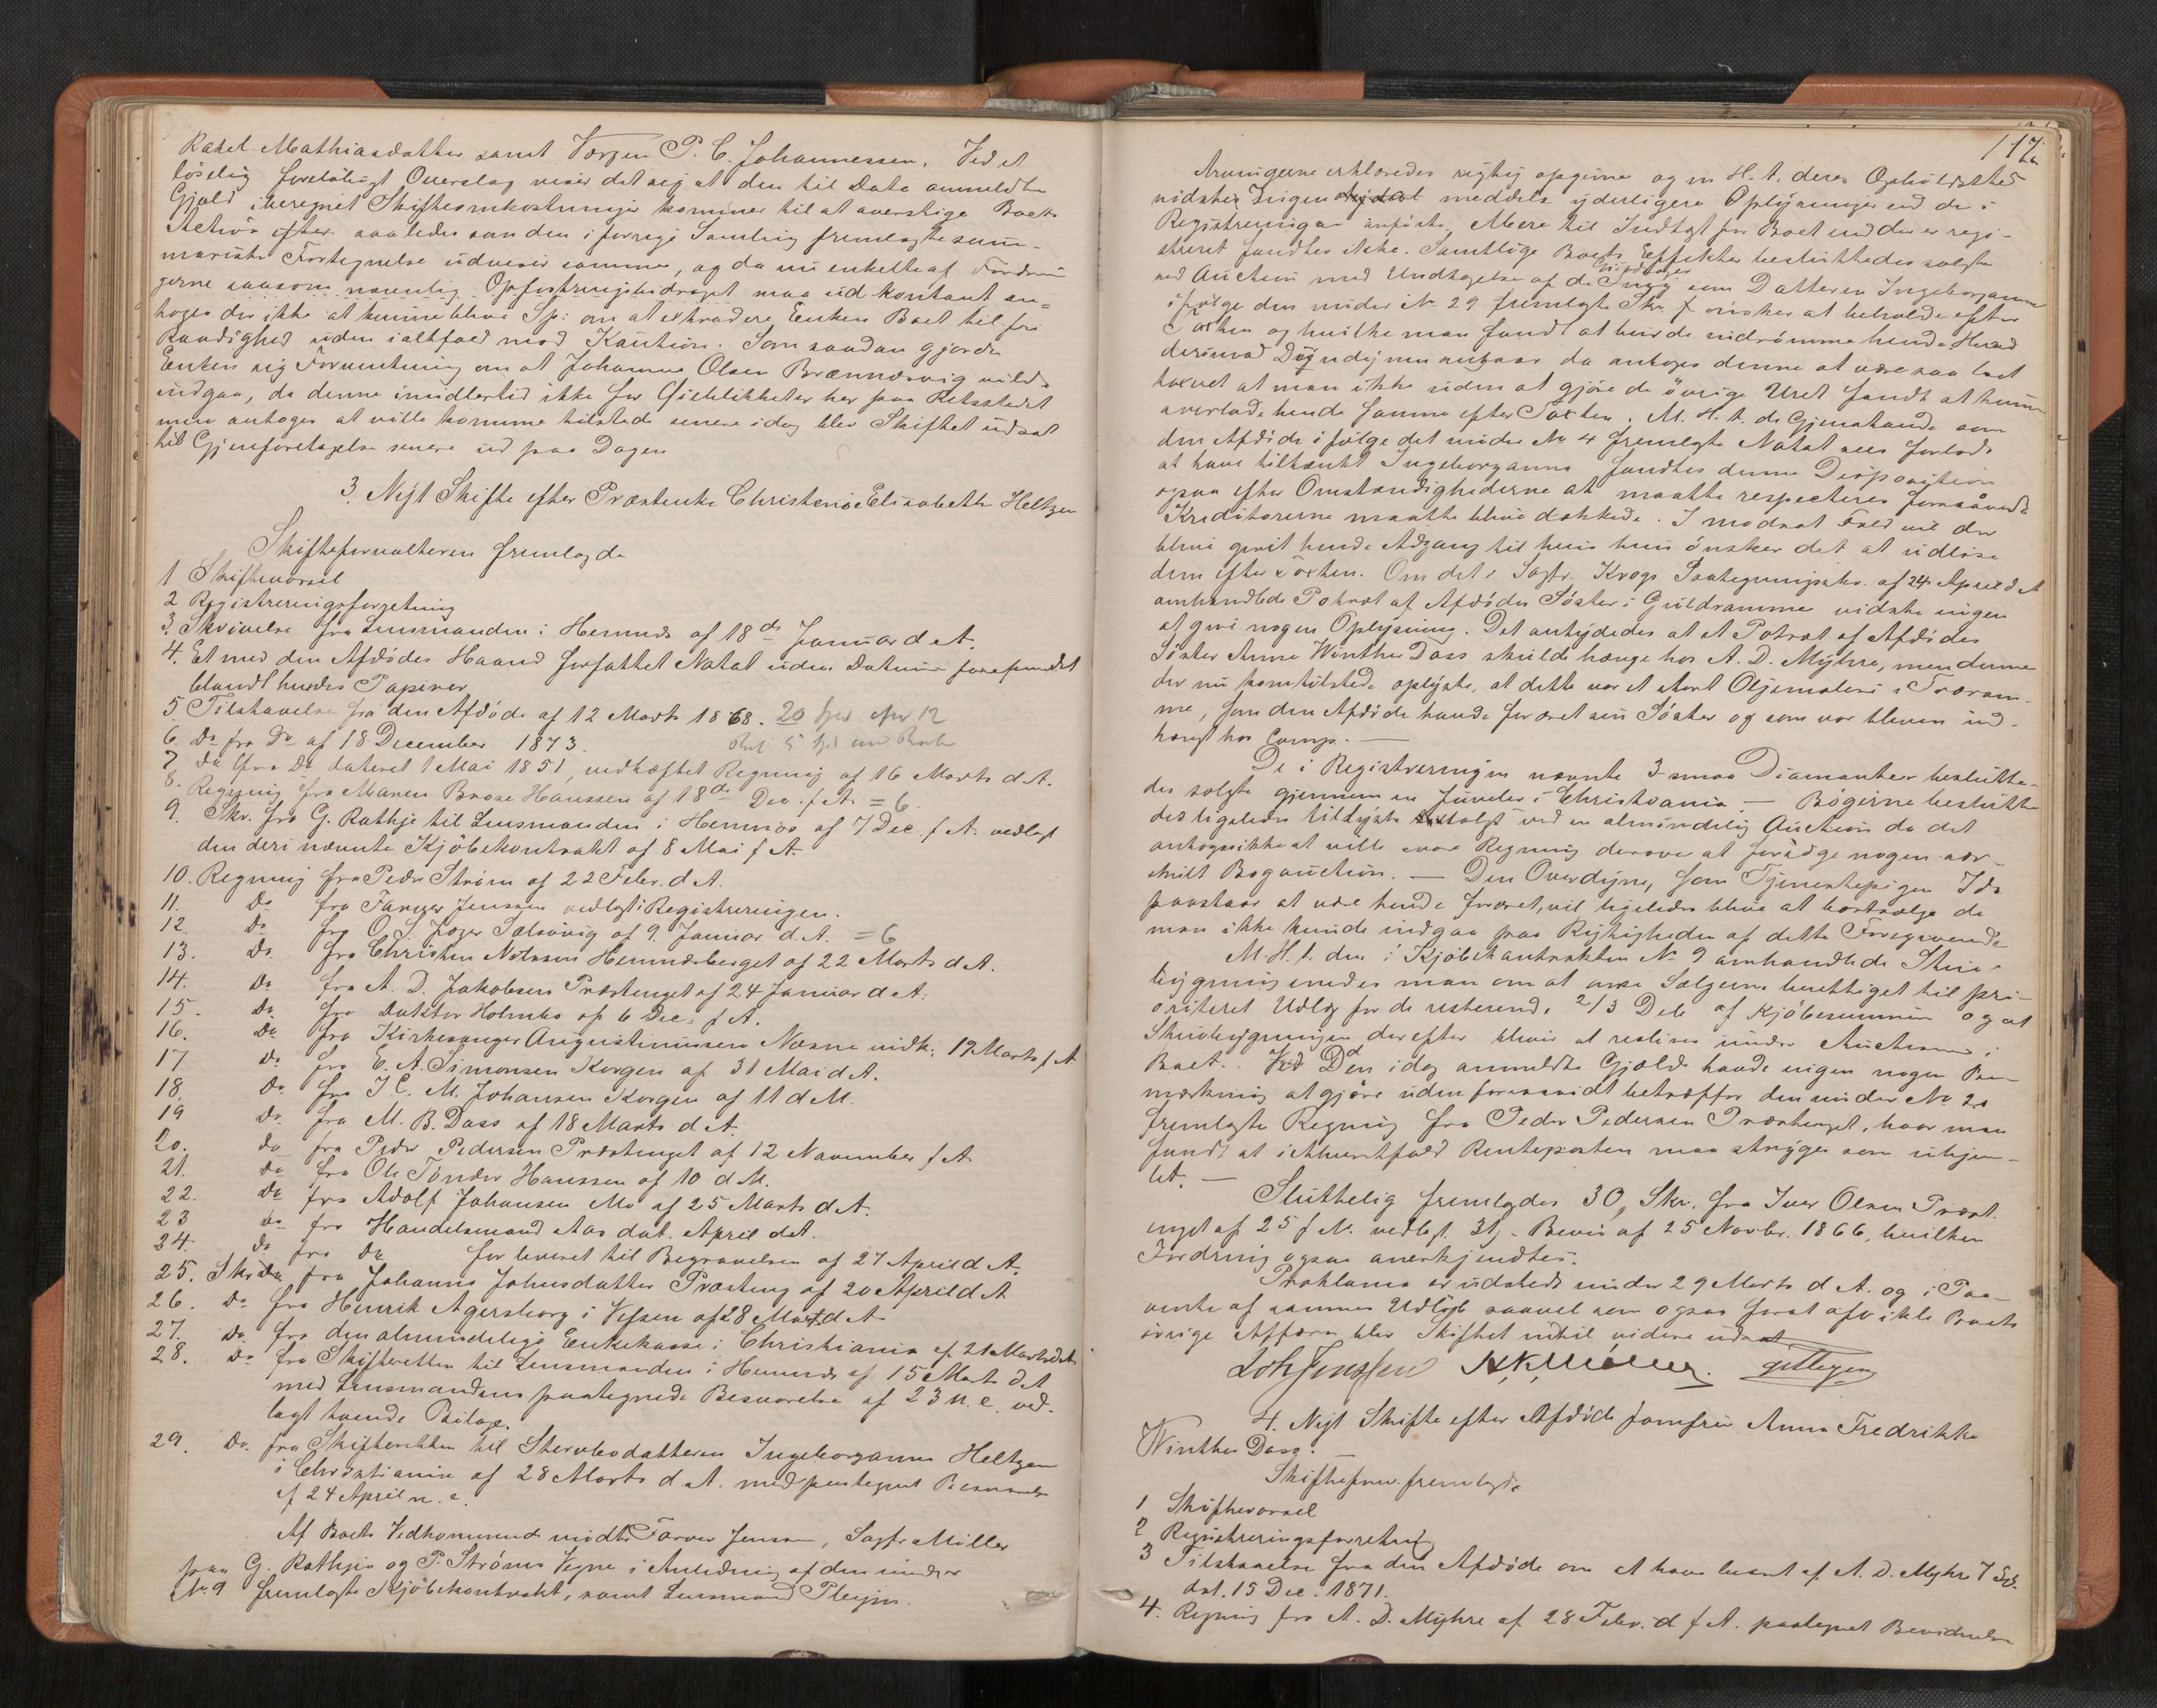 Rakel Mathiasdatter samt Værgen P. C. Johannessen. Ved et
løselig foreløbigt Overslag viser det sig at den til Dato anmeldte
Gjæld iberegnet Skifteomkostninger kommer til at overstige Boets
Activa efter saaledes som den i forrige Samling fremlagte sum-
mariske Fortegnelse udviser samme, og da nu enkelte af Fordrin
gerne saasom navnlig Opfostringsbidraget maa ud kontant an-
toges der ikke at kunne blive Sp: om at extradere Enken Boet til fri
Raadighed uden ialtfald mod Kaution. Som saadan gjorde
Enken sig Forventning om at Johannes Olsen Brennesvig vilde
indgaa, da denne imidlertid ikke for Øieblikket er her paa Retsstedet
men antoges at ville komme tilstede senere idag blev Skiftet udsat
til Gjenforetagelse senere ud paa Dagen
3. Nyt Skifte efter Præsteenke Christence Elisabeth Heltzen
Skifteforvalteren fremlagde
1 Skiftevarsel
2 Registreringsforretning
3. Skrivelse fra Lensmanden i Hemnes af 18de Januar d A.
4. Et med den Afdødes Haand forfattet Notat uden Datum forefundet
blandt hendes Papirer
5 Tilstaaelse fra den Afdøde af 12 Marts 1868. 20
6. Do fra Do af 18 December 1873.
7 Do fra Do dateret 1 Mai 1851, vedhæftet Regning af 16 Marts d A.
8. Regning fra Maren Brose Hanssen af 18de Dec. f A. = 6.
9. Skr. fra G. Rathje til Lensmanden i Hemnes af 7 Dec. f A. vedlagt
den deri nævnte Kjøbekontrakt af 8 Mai f A.
10. Regning fra Peder Strøm af 22 Febr. d A.
11. Do fra Farver Jenssen vedlagt i Registreringen.
12. Do fra O. S. Jæger Sælsvig af 9. Januar d. A. = 6
13. Do fra Christen Nilssen Hemnesberget af 22 Marts d A.
14. Do fra A. D. Jakobsen Præstenget af 24 Januar d A.
15. Do fra Doktor Holmbo af 6 Dec. f A.
16. Do fra Kirkesanger Augustinussen Nesne vidk: 19 Marts f A
17 Do fra E. A. Simonsen Korgen af 31 Mai d A.
18. Do fra J C. M. Johansen Korgen af 11 d M.
19 Do fra M. B. Dass af 18 Marts d A.
20. Do fra Peder Pedersen Præstenget af 12 November f A
21. Do fra Ole Tønder Hanssen af 10 d M.
22. Do fra Adolf Johansen Mo af 25 Marts d A.
23 Do fra Handelsmand Aas dat. April d A.
24. Do fra Do for leveret til Begravelsen af 27 April d A.
25. Skr fra Johanna Johnsdatter Præsteng af 20 April d A
26. Do fra Henrik Agersborg i Vefsen af 28 Marts d A
27. Do fra den almindelige Enkekasse i Christiania af 21 Marts d A
28. Do fra Skifteretten til Lensmanden i Hemnes af 15 Marts d A
med Lensmandens paategnede Besvarelse af 23 n. e. ved-
lagt tvende Bilage.
29. Do fra Skifteretten til Stervbodatteren Ingeborganna Heltzen
i Christiania af 28 Marts d A. med paategnet Besvarelse
af 24 April n. e.
Af Boets Vedkommende mødte Farver Jenssen, Sagf. Møller
paa G. Rathjes og P. Strøms Vegne i Anledning af den under
No. 9 fremlagte Kjøbekontrakt, samt Lensmand Pleym.
117
Arvingerne erklæredes rigtig opgivne og m. H. t. deres Opholdssted
vidste Ingen meddele yderligere Oplysninger end de i
Registreringen anførte. Mere til Indtægt for Boet end den er regi-
streret fandtes ikke. Samtlige Boets Effekter besluttedes solgte
ved Auction med Undtagelse af de som Datteren Ingeborganna
ifølge den under No 29 fremlagte Skr. f ønsker at beholde efter
Taxten og hvilke man fandt at burde indrømme hende. Hvad
derimod Død angaar da antoges denne at være saa lavt
taxeret at man ikke uden at gjøre de øvrige Uret fandt at kunne
overlade hende samme efter Taxten. M. H. t. de Gjenstande som
den Afdøde i følge det under No 4 fremlagte Notat sees forlods
at have tiltænkt Ingeborganna fandtes denne Disposition
ogsaa efter Omstændighederne at maatte respecteres forsaavidt
Kreditorerne maatte blive dækkede. I modsat Fald vil der
blive givet hende Adgang til hvis hun ønsker det at udløse
dem efter Taxten. Om det i Sagfr. Krogs Paategningsskr. af 24 April d A
omhandlede Potræt af Afdødes Søster i Guldramme vidste ingen
at give nogen Oplysning. Det antydedes at et Potræt af Afdødes
Søster Anna Winther Dass skulde hænge hos A. D. Myhre, men denne
der nu kom tilstede oplyste, at dette var et stort Oljemaleri i Træram-
me, som den Afdøde havde foræret sin Søster og som var bleven ind-
hængt hos Comp. —
De i Registreringen nævnte 3 smaa Diamanter beslutte-
des solgte gjennem en Juveler i Christiania — Bøgerne beslutte
des ligeledes solgt ved en almindelig Auction da det
antoges ikke at ville svare Regning derover at foranstalte nogen sær-
skilt Bogauction. — Den Overdyne, som Tjenestepigen Ida
paastaar at være hende foræret, vil ligeledes blive at bortsælge da
man ikke kunde indgaa paa Rigtigheden af dette Foregivende
M. H. t. den i Kjøbekontrakten No 9 omhandlede Stue-
bygning enedes man om at anse Sælgerne berettiget til pri-
oriteret Udlæg for de resterende 2/3 Dele af Kjøbesummen og at
Stuebygningen derefter bliver at realisere under Auctionen i
Boet. Den idag anmeldte Gjæld havde ingen nogen Be-
mærkning at gjøre uden forsaavidt betræffer den under No 20
fremlagte Regning fra Peder Pedersen Præstenget, hvor man
fandt at i ethvert fald Renteposten maa stryges som uhjem-
let. —
Sluttelig fremlagdes 30, Skr. fra Iver Olsen Præst-
enget af 25 f M. vedlagt 31, - Bevis af 25 Novbr. 1866, hvilken
Fordring ogsaa anerkjendtes.
Proklama er udstedt under 29 Marts d A. og i Paa-
vente af sammes Udløb saavel som ogsaa forat afvikle Boets
øvrige Affærer blev Skiftet indtil videre udsat
Joh Jenssen
4. Nyt Skifte efter Afdøde Jomfru Anna Fredrikke
Winther Dass. —
Skifteforv. fremlagde
1 Skiftevarsel
2 Registreringsforretning
3 Tilstaaelse fra den Afdøde om at have laant af A. D. Myhre 7 Sp.
dat. 15 Dec. 1871.
4. Regning fra A. D. Myhre af 28 Febr. d f A. paategnet Bevidnelse